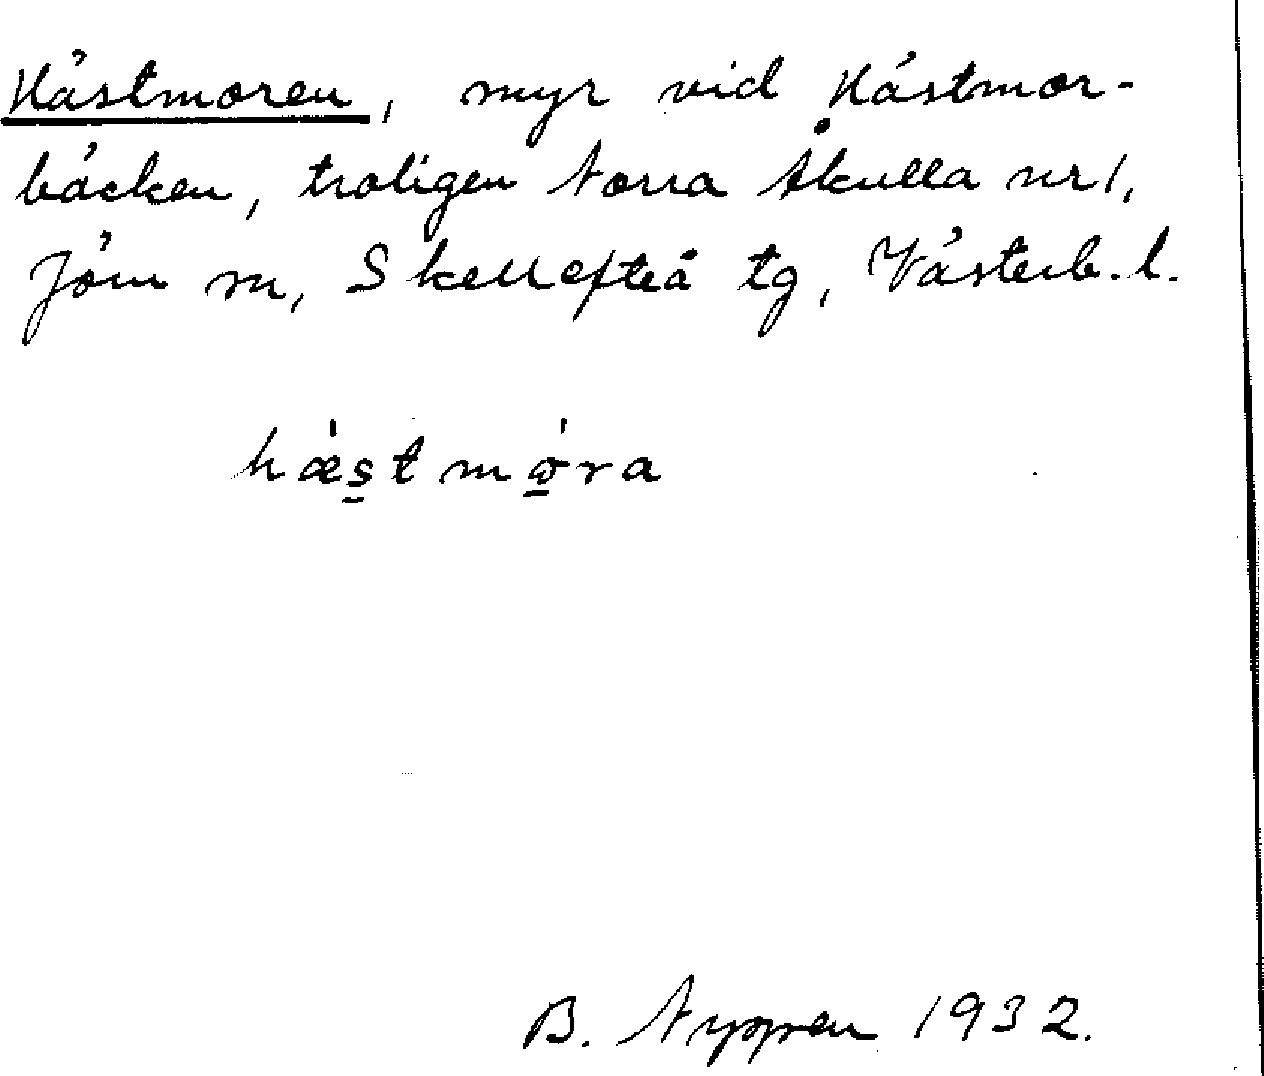 Hästmoren, myr vid Hästmor-
bäcken, troligen Norra Åkulla nr 1,
Jörn sn, Skellefteå tg, Västerb. l.
hæ̍s̠tmø̠̍ra
B. Nygren 1932.